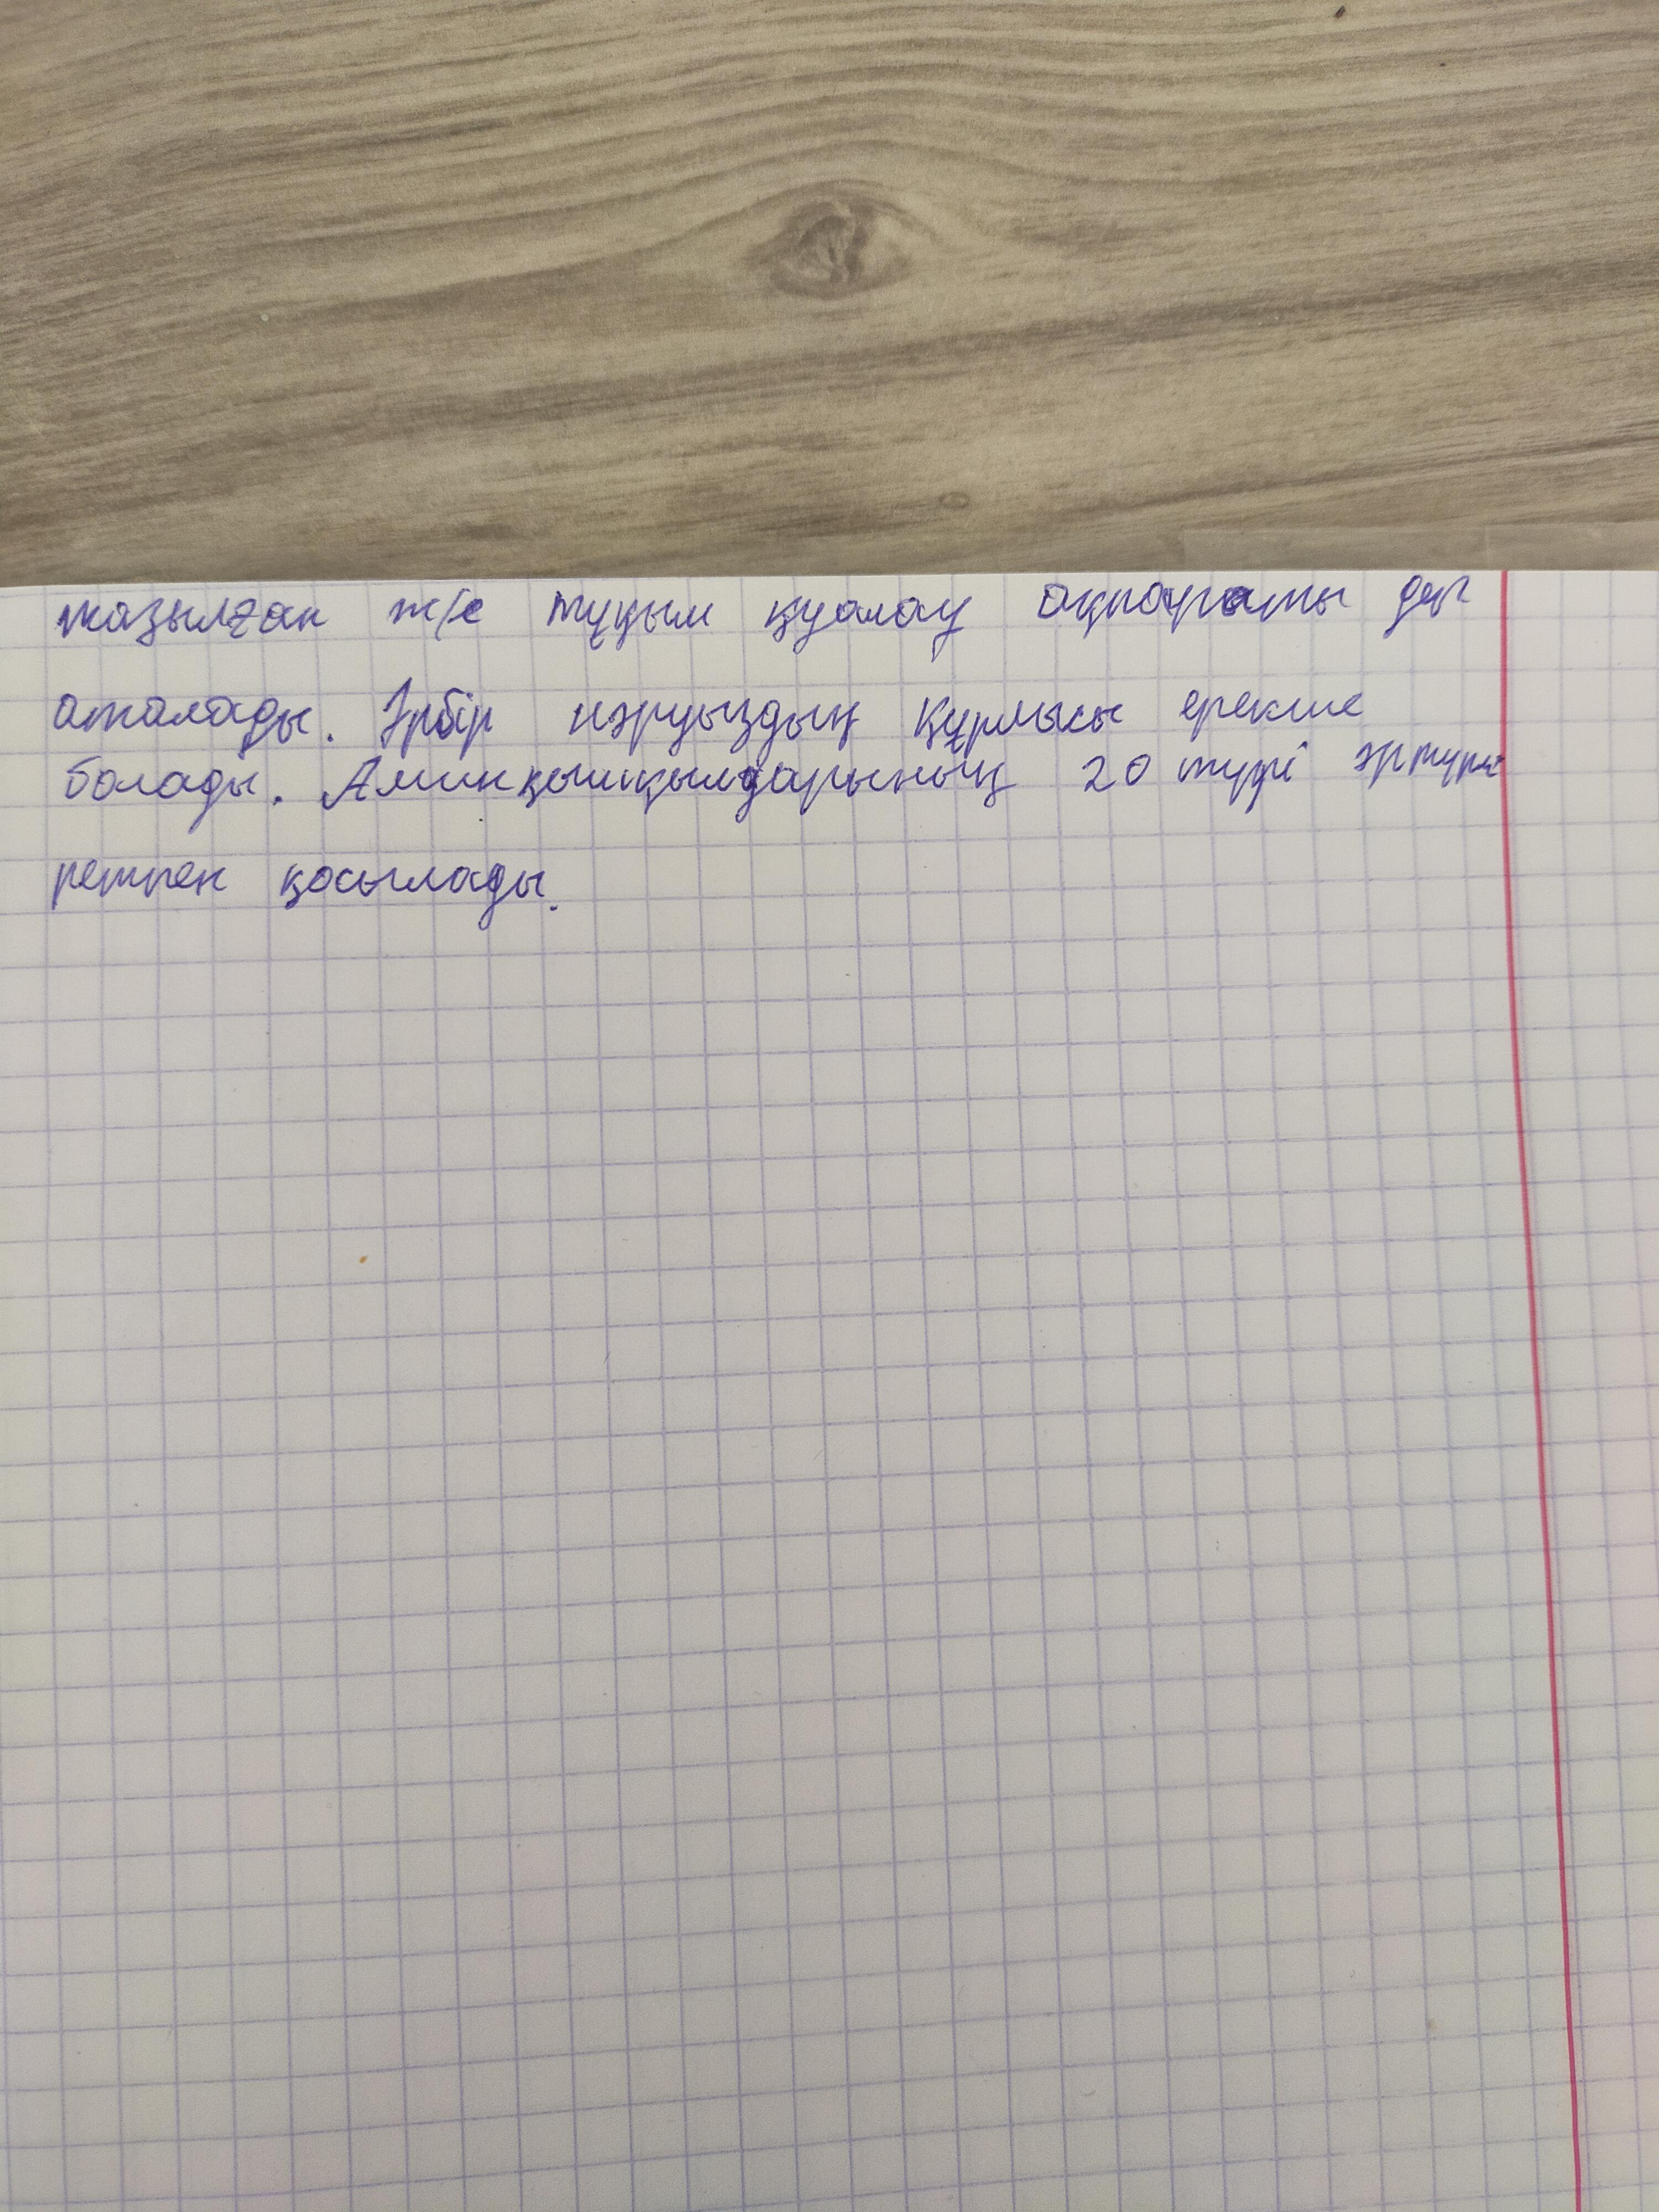 жазылған ж/е тұқым қуалау ақпараты деп
аталады. Әрбір нәруыздың құрлысы ерекше
болады. Аминқышқылдарының 20 түрі әртүрлі
ретпен қосылады.